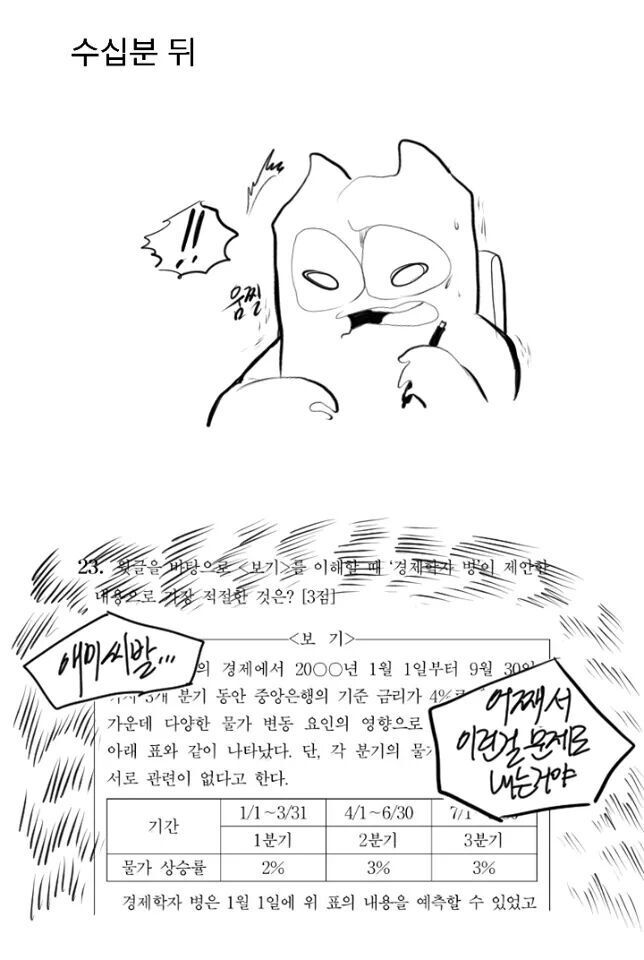 수십분 뒤
!!
움찔
23. 윗글을 바탕으로 <보기>를 이해할 때 '경제학자 병'이 제안한
내용으로 가장 적절한 것은? [3점]
<보 기>
애미 씨발...
의 경제에서 20○○년 1월 1일부터 9월 30일
까지 3개 분기 동안 중앙은행의 기준 금리가 4%로
가운데 다양한 물가 변동 요인의 영향으로
아래 표와 같이 나타났다. 단, 각 분기의 물가
서로 관련이 없다고 한다.
어째서
이런걸 문제로
내는거야
기간 1/1~3/31 4/1~6/30 7/1
1분기 2분기 3분기
물가 상승률 2% 3% 3%
경제학자 병은 1월 1일에 위 표의 내용을 예측할 수 있었고